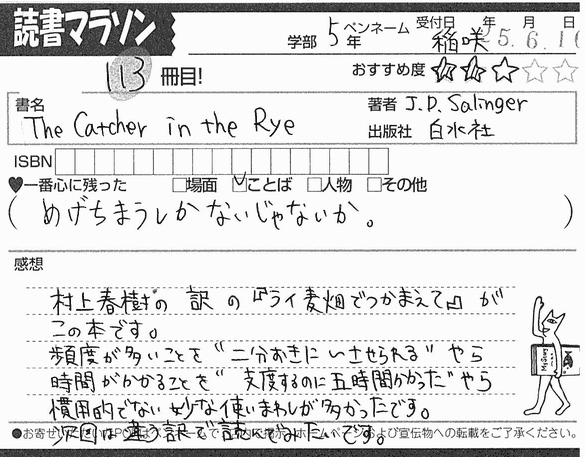 読書マラソン
学部 5年 ペンネーム 稲咲 受付日 年 月 日
5.6.10
113 冊目!
おすすめ度 ★★★☆☆
書名 The Catcher in the Rye
著者 J.D. Salinger
出版社 白水社
ISBN
♥一番心に残った □場面 ☑ことば □人物 □その他
( めげちまうしかないじゃないか。 )
感想
村上春樹の訳の『ライ麦畑でつかまえて』が
この本です。
頻度が多いことを“二分おきに いさせられる”やら
時間がかかることを“支度するのに五時間かかった”やら
慣用的でない妙な使いまわしが多かったです。
次回は違う訳で読んでみたいです。